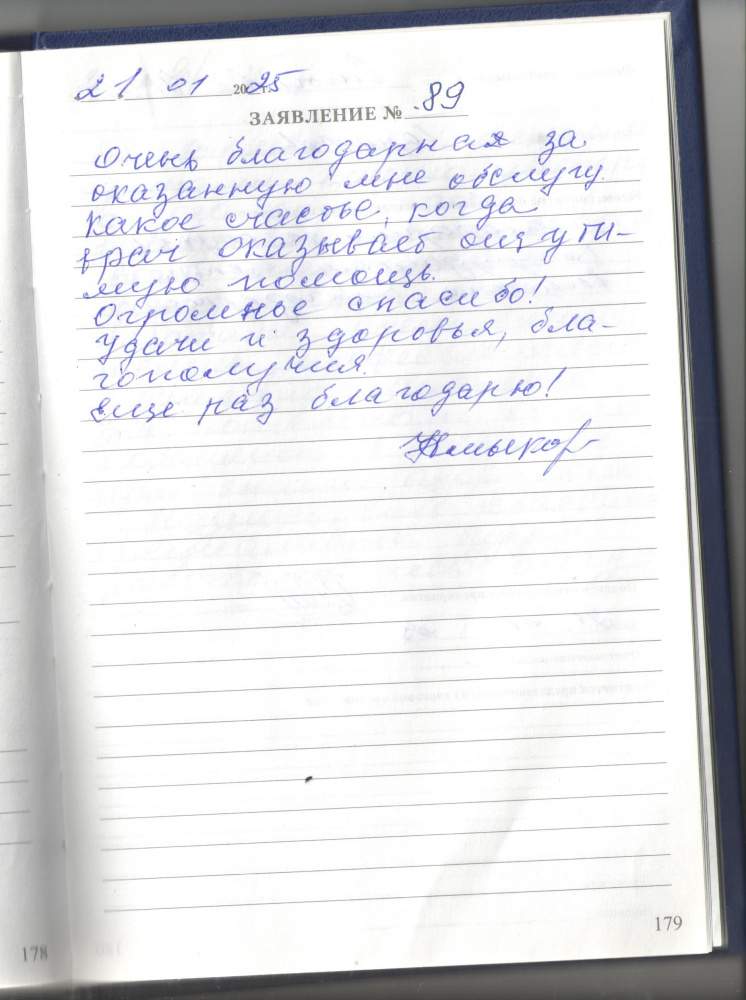 21 01 2025
ЗАЯВЛЕНИЕ № 89
Очень благодарная за
оказанную мне обслугу.
Какое счастье, когда
врач оказывает ощути-
мую помощь.
Огромное спасибо!
Удачи и здоровья, бла-
гополучия.
Еще раз благодарю!
178
179